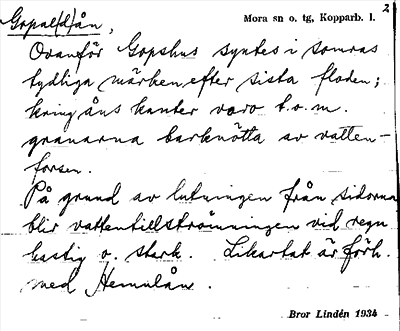 2
Gopal(d)ån,
Mora sn o. tg, Kopparb. l.
Ovanför Gopshus syntes i somras
tydliga märken efter sista floden;
kring åns kanter voro t.o.m.
granarna barknötta av vatten-
forsen.
På grund av lutningen från sidorna
blir vattentillströmningen vid regn
hastig o. stark. Likartat är förh.
med Hemulån.
Bror Lindén 1934